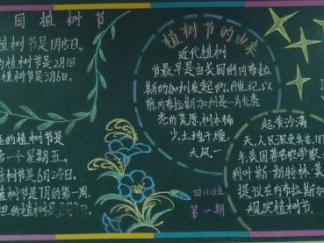 国植树节
植树节是1月15日。
植树节是2月1日
植树节是3月6日。
植树节的由来
近代植树
节最早是由美国的内布拉
斯的加州发起的。19世纪以
前,内布拉斯加州是一片光秃
秃的荒原,树木稀
少,土地干燥,
大风一
起,黄沙满
天,人民深受其苦。
年,美国著名农学家
利叶斯·斯特林·莫
提议在内布拉斯加
规定植树节
的植树节是
第一个星期五。
植树节是6月24日。
植树节是7月的第一周
的植树节是
四(1)班
第一期